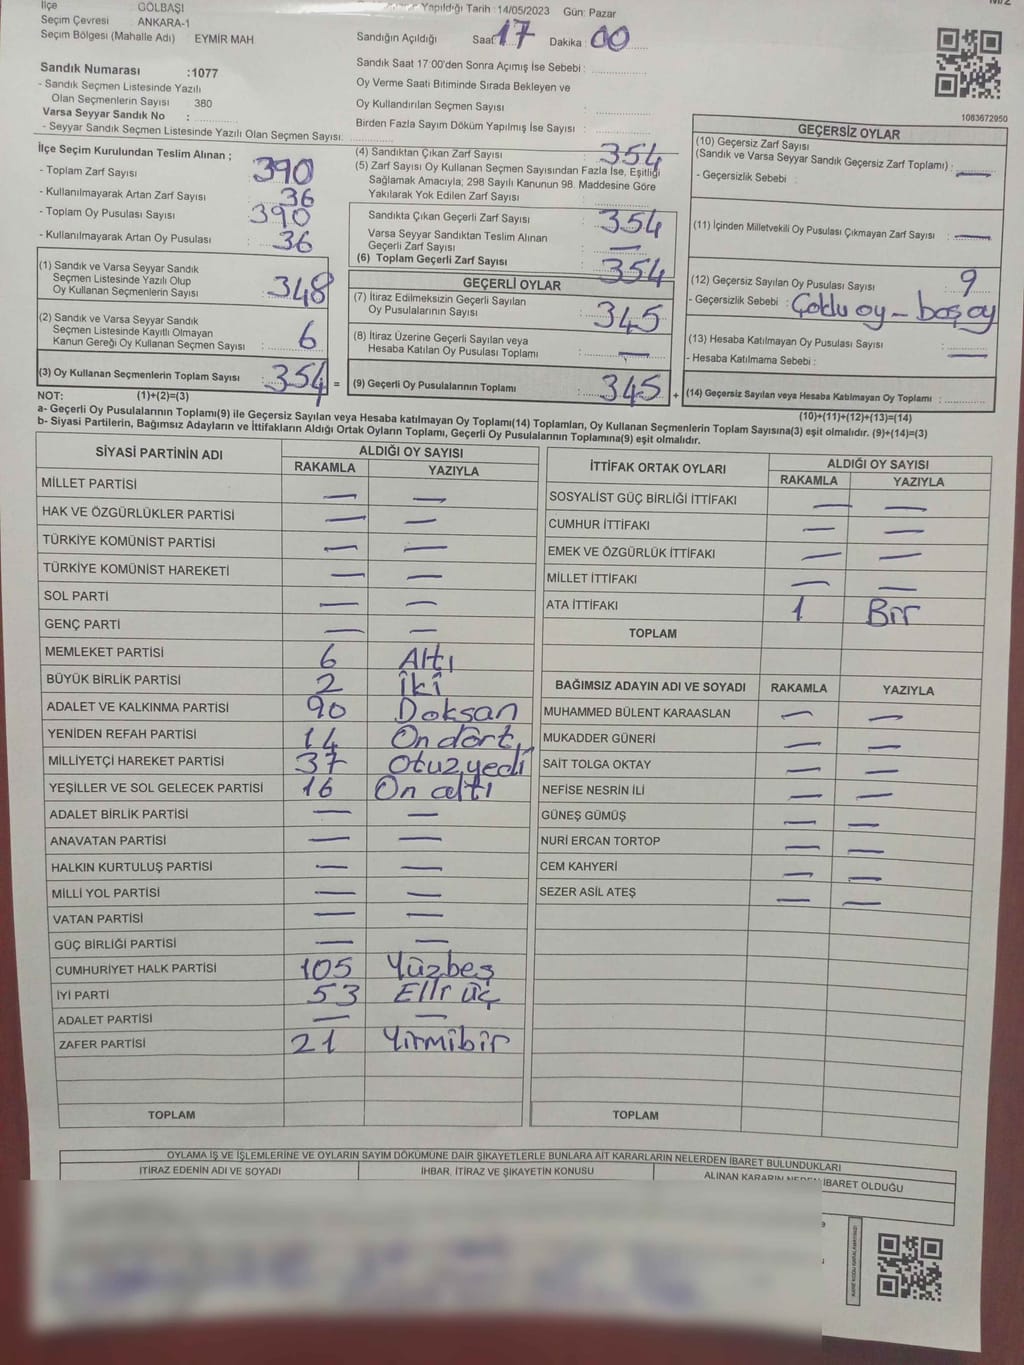 İlçe GÖLBAŞI
Seçim Çevresi ANKARA-1
Seçim Bölgesi (Mahalle Adı) EYMİR MAH
Sandık Numarası :1077
- Sandık Seçmen Listesinde Yazılı
Olan Seçmenlerin Sayısı 380
Varsa Seyyar Sandık No :
- Seyyar Sandık Seçmen Listesinde Yazılı Olan Seçmen Sayısı:
Yapıldığı Tarih :14/05/2023 Gün: Pazar
Sandığın Açıldığı Saat 17 Dakika : 00
Sandık Saat 17:00'den Sonra Açımış İse Sebebi :
Oy Verme Saati Bitiminde Sırada Bekleyen ve
Oy Kullandırılan Seçmen Sayısı :
Birden Fazla Sayım Döküm Yapılmış İse Sayısı :
1083672950
İlçe Seçim Kurulundan Teslim Alınan ;
- Toplam Zarf Sayısı : 390
- Kullanılmayarak Artan Zarf Sayısı : 36
- Toplam Oy Pusulası Sayısı : 390
- Kullanılmayarak Artan Oy Pusulası : 36
(1) Sandık ve Varsa Seyyar Sandık
Seçmen Listesinde Yazılı Olup
Oy Kullanan Seçmenlerin Sayısı : 348
(2) Sandık ve Varsa Seyyar Sandık
Seçmen Listesinde Kayıtlı Olmayan
Kanun Gereği Oy Kullanan Seçmen Sayısı : 6
(3) Oy Kullanan Seçmenlerin Toplam Sayısı : 354 =
(4) Sandıktan Çıkan Zarf Sayısı : 354
(5) Zarf Sayısı Oy Kullanan Seçmen Sayısından Fazla İse, Eşitliği
Sağlamak Amacıyla, 298 Sayılı Kanunun 98. Maddesine Göre
Yakılarak Yok Edilen Zarf Sayısı :
Sandıkta Çıkan Geçerli Zarf Sayısı : 354
Varsa Seyyar Sandıktan Teslim Alınan
Geçerli Zarf Sayısı : —
(6) Toplam Geçerli Zarf Sayısı : 354
GEÇERLİ OYLAR
(7) İtiraz Edilmeksizin Geçerli Sayılan
Oy Pusulalarının Sayısı : 345
(8) İtiraz Üzerine Geçerli Sayılan veya
Hesaba Katılan Oy Pusulası Toplamı : —
(9) Geçerli Oy Pusulalarının Toplamı : 345 +
GEÇERSİZ OYLAR
(10) Geçersiz Zarf Sayısı
(Sandık ve Varsa Seyyar Sandık Geçersiz Zarf Toplamı) : —
- Geçersizlik Sebebi :
(11) İçinden Milletvekili Oy Pusulası Çıkmayan Zarf Sayısı : —
(12) Geçersiz Sayılan Oy Pusulası Sayısı : 9
- Geçersizlik Sebebi : Çoklu oy - boş oy
(13) Hesaba Katılmayan Oy Pusulası Sayısı : —
- Hesaba Katılmama Sebebi :
(14) Geçersiz Sayılan veya Hesaba Katılmayan Oy Toplamı :
NOT: (1)+(2)=(3) (10)+(11)+(12)+(13)=(14)
a- Geçerli Oy Pusulalarının Toplamı(9) ile Geçersiz Sayılan veya Hesaba katılmayan Oy Toplamı(14) Toplamları, Oy Kullanan Seçmenlerin Toplam Sayısına(3) eşit olmalıdır. (9)+(14)=(3)
b- Siyasi Partilerin, Bağımsız Adayların ve İttifakların Aldığı Ortak Oyların Toplamı, Geçerli Oy Pusulalarının Toplamına(9) eşit olmalıdır.
SİYASİ PARTİNİN ADI ALDIĞI OY SAYISI
RAKAMLA YAZIYLA
MİLLET PARTİSİ — —
HAK VE ÖZGÜRLÜKLER PARTİSİ — —
TÜRKİYE KOMÜNİST PARTİSİ — —
TÜRKİYE KOMÜNİST HAREKETİ — —
SOL PARTİ — —
GENÇ PARTİ — —
MEMLEKET PARTİSİ 6 Altı
BÜYÜK BİRLİK PARTİSİ 2 İki
ADALET VE KALKINMA PARTİSİ 90 Doksan
YENİDEN REFAH PARTİSİ 14 On dört
MİLLİYETÇİ HAREKET PARTİSİ 37 Otuz yedi
YEŞİLLER VE SOL GELECEK PARTİSİ 16 On altı
ADALET BİRLİK PARTİSİ — —
ANAVATAN PARTİSİ — —
HALKIN KURTULUŞ PARTİSİ — —
MİLLİ YOL PARTİSİ — —
VATAN PARTİSİ — —
GÜÇ BİRLİĞİ PARTİSİ — —
CUMHURİYET HALK PARTİSİ 105 Yüzbeş
İYİ PARTİ 53 Elli üç
ADALET PARTİSİ — —
ZAFER PARTİSİ 21 Yirmibir
TOPLAM
İTTİFAK ORTAK OYLARI ALDIĞI OY SAYISI
RAKAMLA YAZIYLA
SOSYALİST GÜÇ BİRLİĞİ İTTİFAKI — —
CUMHUR İTTİFAKI — —
EMEK VE ÖZGÜRLÜK İTTİFAKI — —
MİLLET İTTİFAKI — —
ATA İTTİFAKI 1 Bir
TOPLAM
BAĞIMSIZ ADAYIN ADI VE SOYADI RAKAMLA YAZIYLA
MUHAMMED BÜLENT KARAASLAN — —
MUKADDER GÜNERİ — —
SAİT TOLGA OKTAY — —
NEFİSE NESRİN İLİ — —
GÜNEŞ GÜMÜŞ — —
NURİ ERCAN TORTOP — —
CEM KAHYERİ — —
SEZER ASİL ATEŞ — —
TOPLAM
OYLAMA İŞ VE İŞLEMLERİNE VE OYLARIN SAYIM DÖKÜMÜNE DAİR ŞİKAYETLERLE BUNLARA AİT KARARLARIN NELERDEN İBARET BULUNDUKLARI
İTİRAZ EDENİN ADI VE SOYADI İHBAR, İTİRAZ VE ŞİKAYETİN KONUSU ALINAN KARARIN NEDEN İBARET OLDUĞU